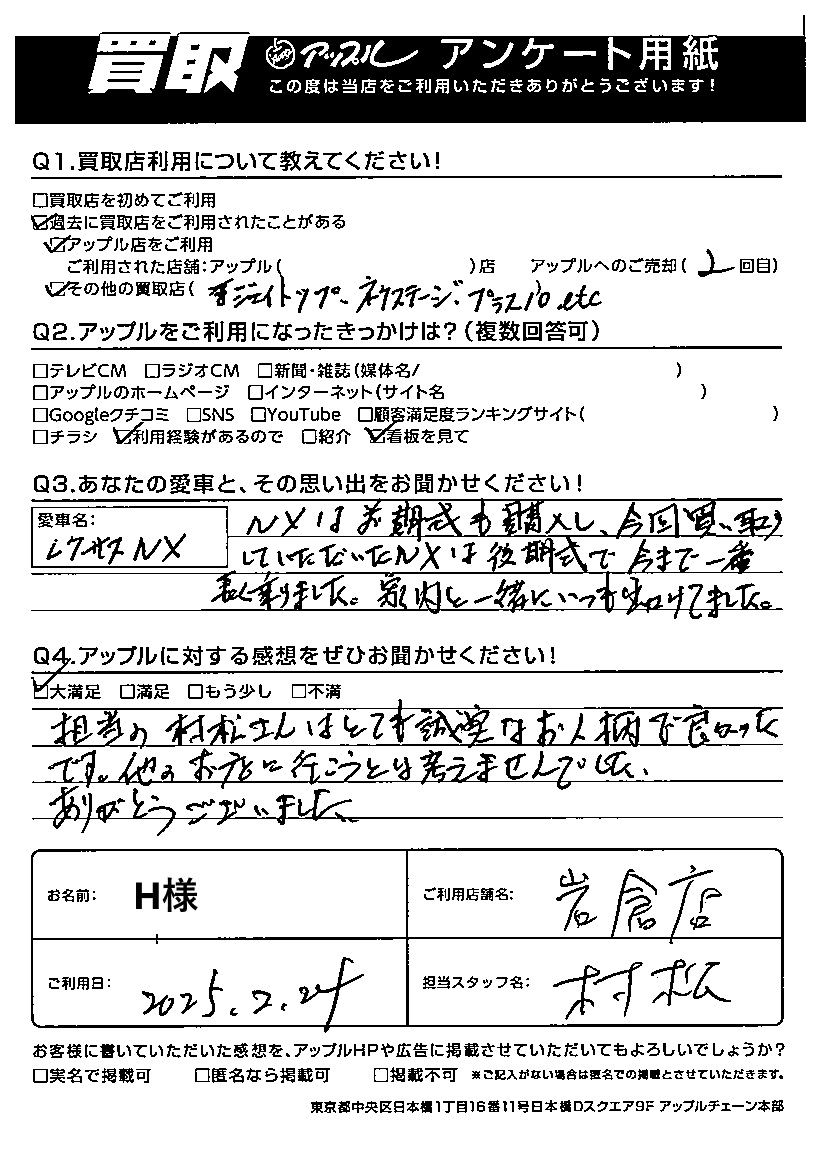 買取 アップル アンケート用紙
この度は当店をご利用いただきありがとうございます!
Q1.買取店利用について教えてください!
□買取店を初めてご利用
☑過去に買取店をご利用されたことがある
☑アップル店をご利用
ご利用された店舗:アップル( )店 アップルへのご売却( 2 回目)
☑その他の買取店( ネクステージ、プラス10 etc
Q2.アップルをご利用になったきっかけは?(複数回答可)
□テレビCM □ラジオCM □新聞・雑誌(媒体名/ )
□アップルのホームページ □インターネット(サイト名 )
□Googleクチコミ □SNS □YouTube □顧客満足度ランキングサイト( )
□チラシ ☑利用経験があるので □紹介 ☑看板を見て
Q3.あなたの愛車と、その思い出をお聞かせください!
愛車名:
レクサスNX
NXは前期式も購入し、今回買い取り
していただいたNXは後期式で今まで一番
長く乗りました。家内と一緒にいつも出かけてました。
Q4.アップルに対する感想をぜひお聞かせください!
☑大満足 □満足 □もう少し □不満
担当の村松さんはとても誠実なお人柄で良かった
です。他のお店に行こうとは考えませんでした、
ありがとうございました、
お名前: H様 ご利用店舗名: 岩倉店
ご利用日: 2025.2.24 担当スタッフ名: 村松
お客様に書いていただいた感想を、アップルHPや広告に掲載させていただいてもよろしいでしょうか?
□実名で掲載可 □匿名なら掲載可 □掲載不可 ※ご記入がない場合は匿名での掲載とさせていただきます。
東京都中央区日本橋1丁目16番11号日本橋Dスクエア9F アップルチェーン本部